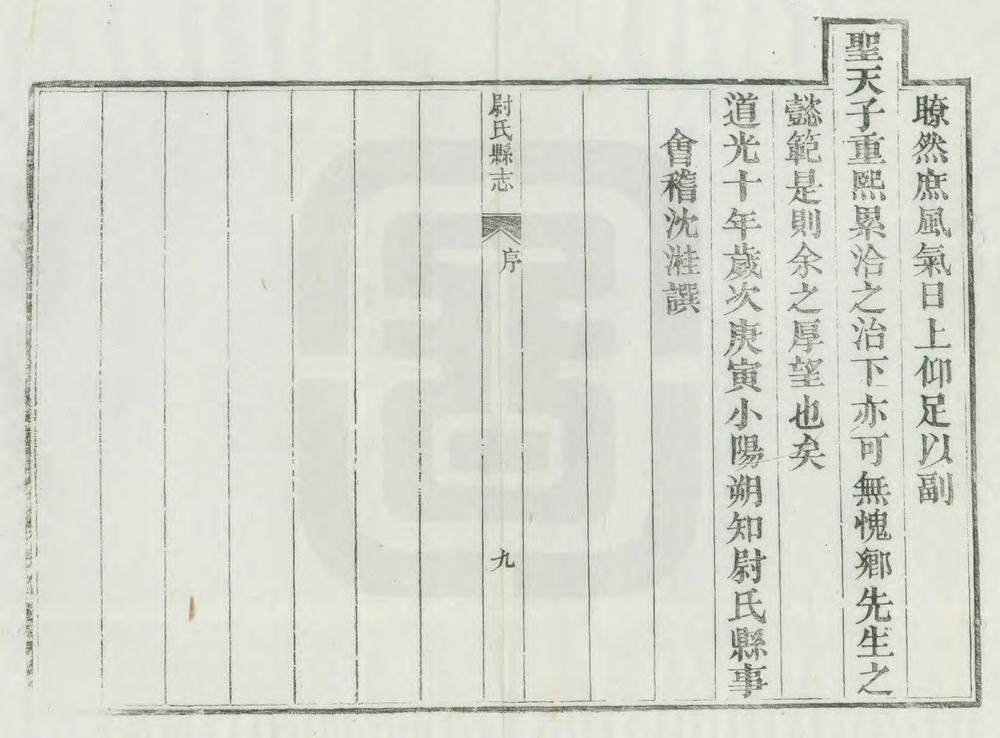 瞭然庶風氣日上仰足以副
聖天子重熙累洽之治下亦可無愧鄉先生之
懿範是則余之厚望也矣
道光十年歲次庚寅小陽朔知尉氏縣事
會稽沈溎譔
尉氏縣志
序
九